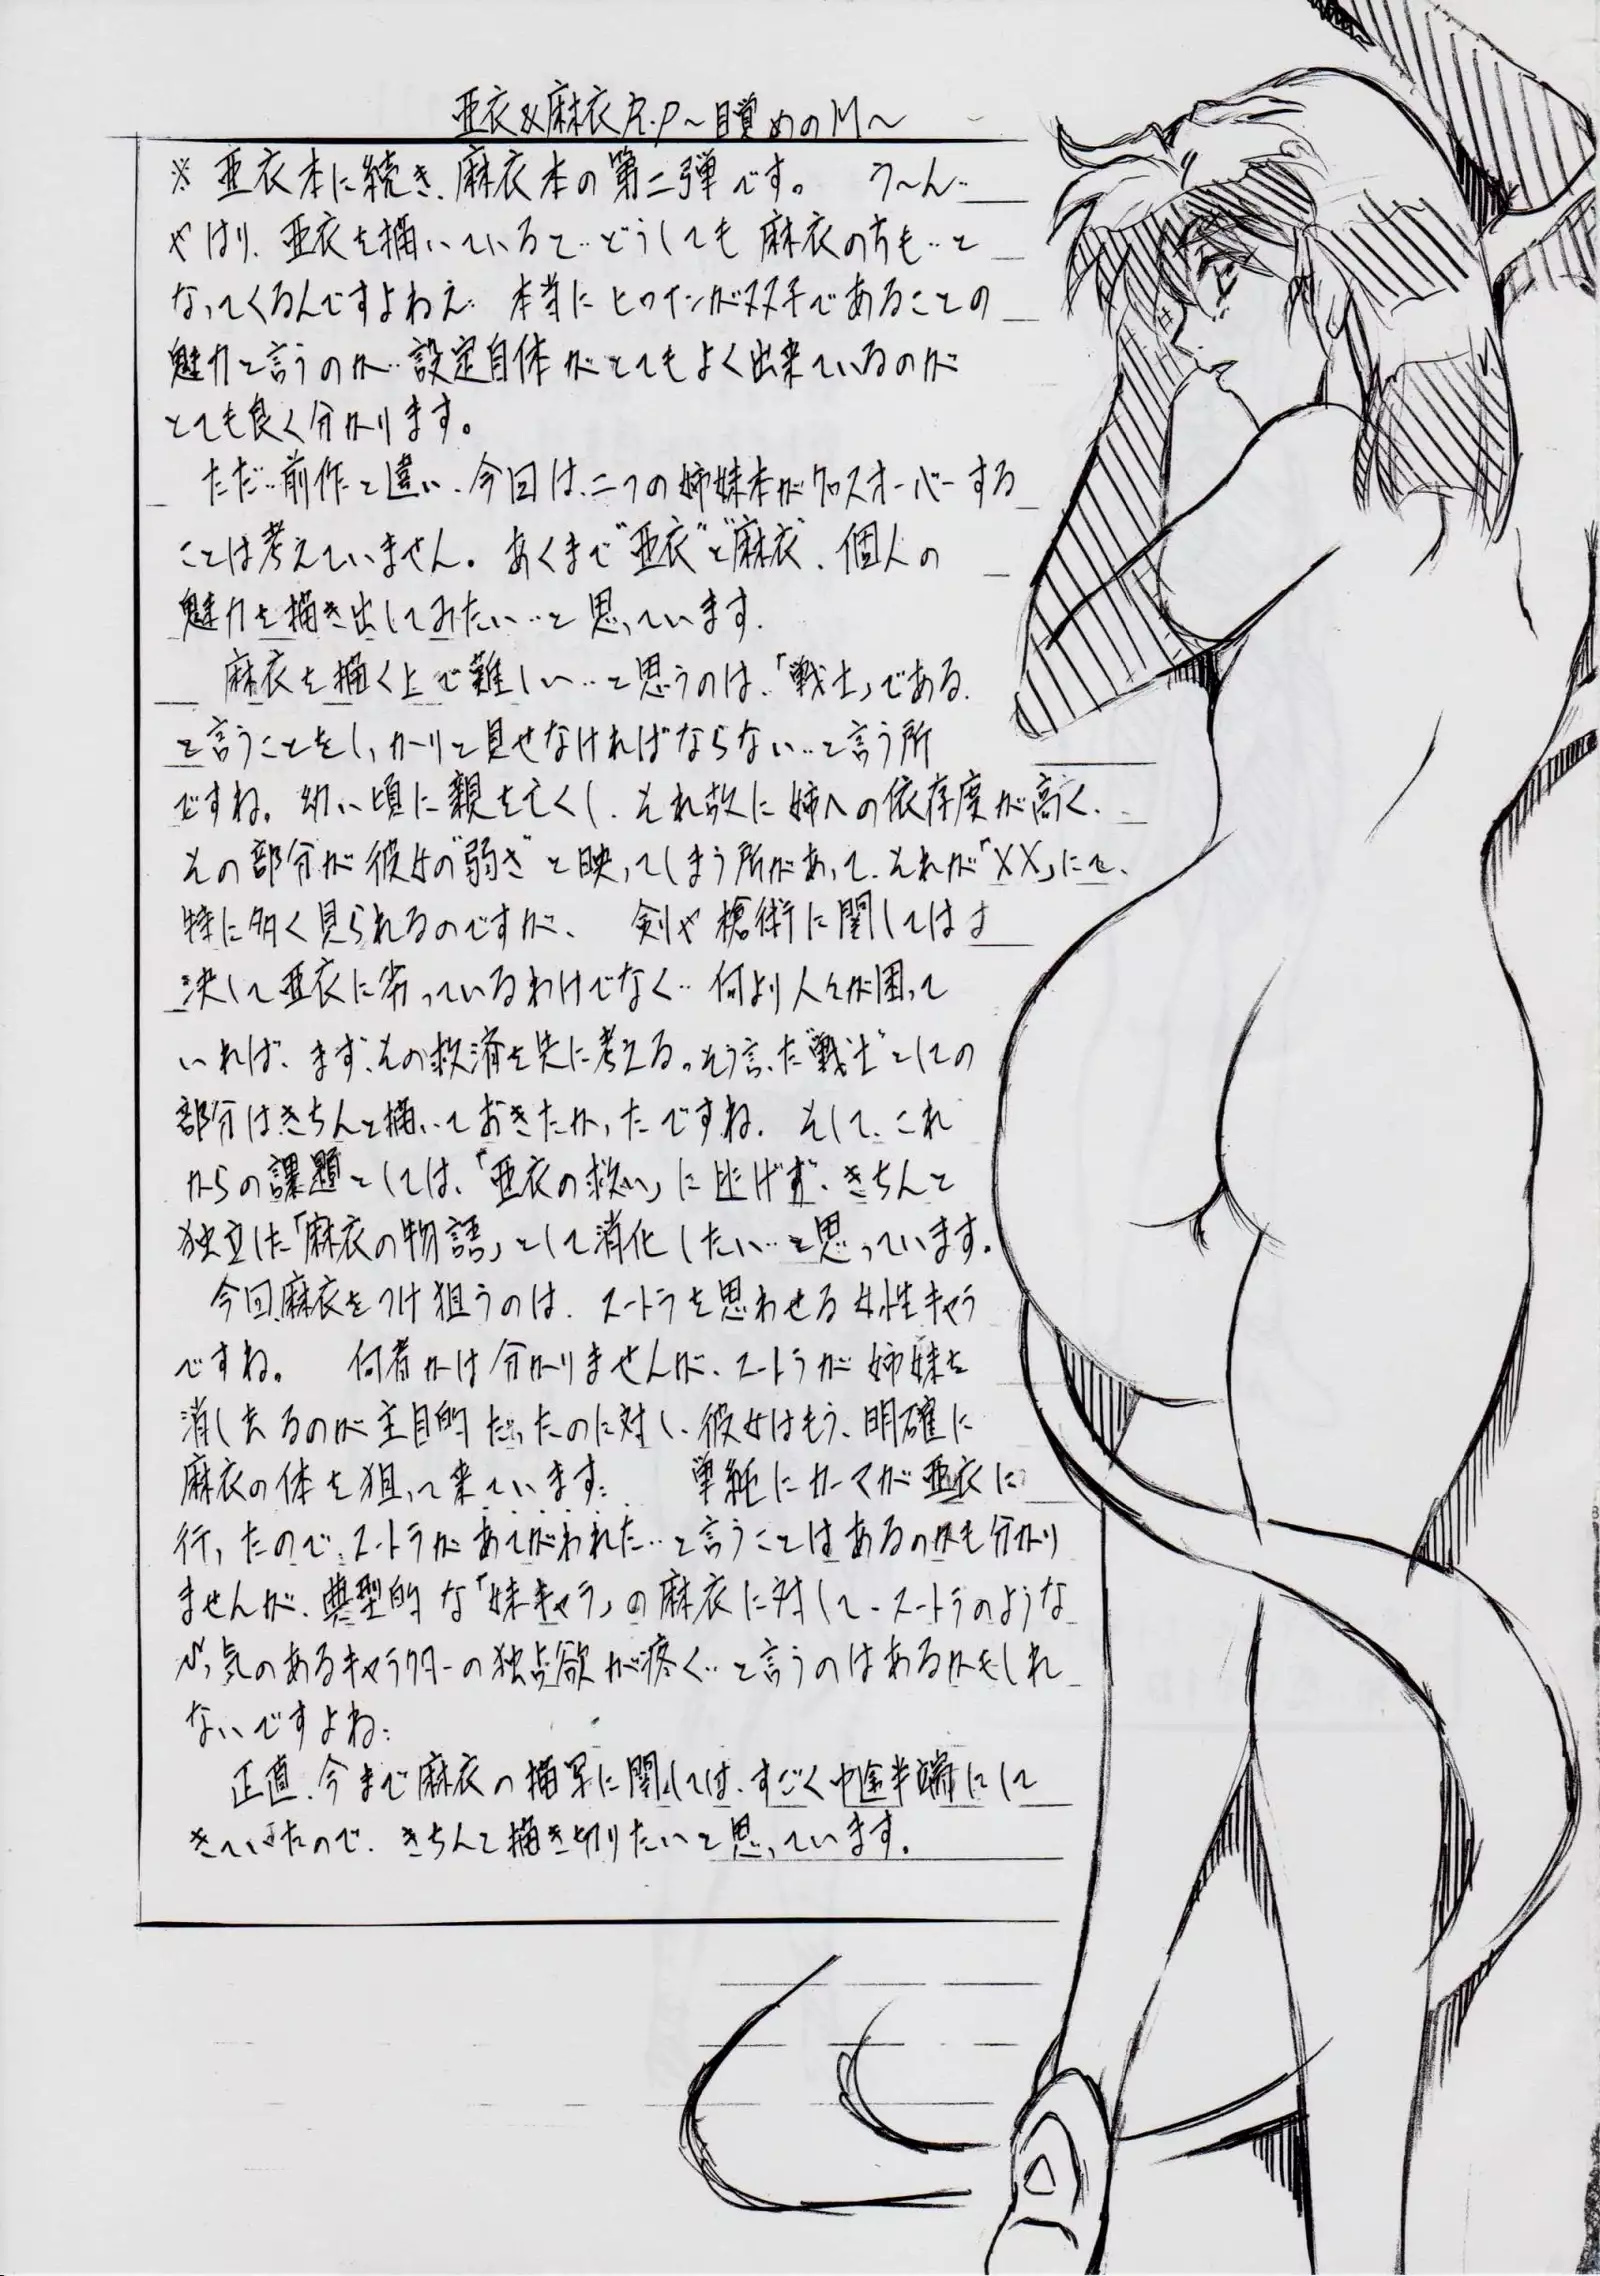 亜衣&麻衣R.P～目覚めのM～
※亜衣本に続き、麻衣本の第二弾です。 う～ん‥
やはり、亜衣を描いていると‥どうしても麻衣の方も‥と
なってくるんですよねえ‥本当にヒロインがヌヌ子であることの
魅力と言うのか‥設定自体がとてもよく出来ているのが
とても良く分かります。
ただ‥前作と違い、今回は、二つの姉妹本がクロスオーバーする
ことは考えていません。あくまで"亜衣"と"麻衣"、個人の
魅力を描き出してみたい‥と思っています。
麻衣を描く上で難しい‥と思うのは、「戦士」である、
と言うことをしっかりと見せなければならない‥と言う所
ですね。幼い頃に親を亡くし、それ故に姉への依存度が高く、
その部分が彼女の"弱さ"と映ってしまう所があって、それが「XX」にて、
特に多く見られるのですが、 剣や槍術に関しては
決して亜衣に劣っているわけでなく‥何より人々が困って
いれば、まず、その救済を先に考える。そう言った"戦士"としての
部分はきちんと描いておきたかったですね。そして、これ
からの課題としては、「亜衣の救い」に逃げず、きちんと
独立した「麻衣の物語」として消化したい‥と思っています。
今回麻衣をつけ狙うのは、スートラを思わせる女性キャラ
ですね。 何者かは分かりませんが、スートラが姉妹を
消し去るのが主目的だったのに対し、彼女はもう、明確に
麻衣の体を狙って来ています‥ 単純にカーマが亜衣に
行ったので、スートラがあてがわれた‥と言うことはあるのかも分かり
ませんが、典型的な「妹キャラ」の麻衣に対して、スートラのような
気のあるキャラクターの独占欲が疼く‥と言うのはあるかもしれ
ないですよね‥
正直、今まで麻衣の描写に関しては、すごく中途半端にして
きていたので、きちんと描き切りたいと思っています。